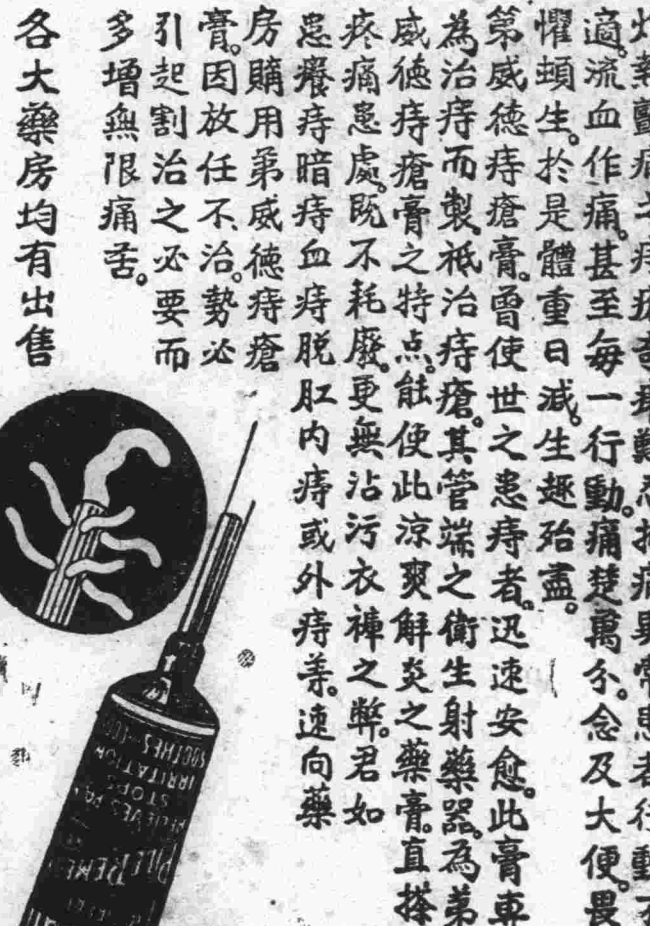 適。流血作痛。甚至每一行動。痛楚萬分。念及大便。畏
懼頓生。於是體重日減。生趣殆盡。
第威德痔瘡膏。曾使世之患痔者。迅速安愈。此膏專
為治痔而製。祇治痔瘡。其管端之衛生射藥器。為弟
威德痔瘡膏之特点。能使此涼爽解炎之藥膏。直搽
疼痛患處。既不耗廢。更無沾污衣褲之弊。君如
患癢痔暗痔血痔脫肛內痔或外痔等。速向藥
房購用弟威德痔瘡
膏。因放任不治。勢必
引起割治之必要而
多增無限痛苦。
各大藥房均有出售
SOOTHES
IRRITATION
STOPS
PILE